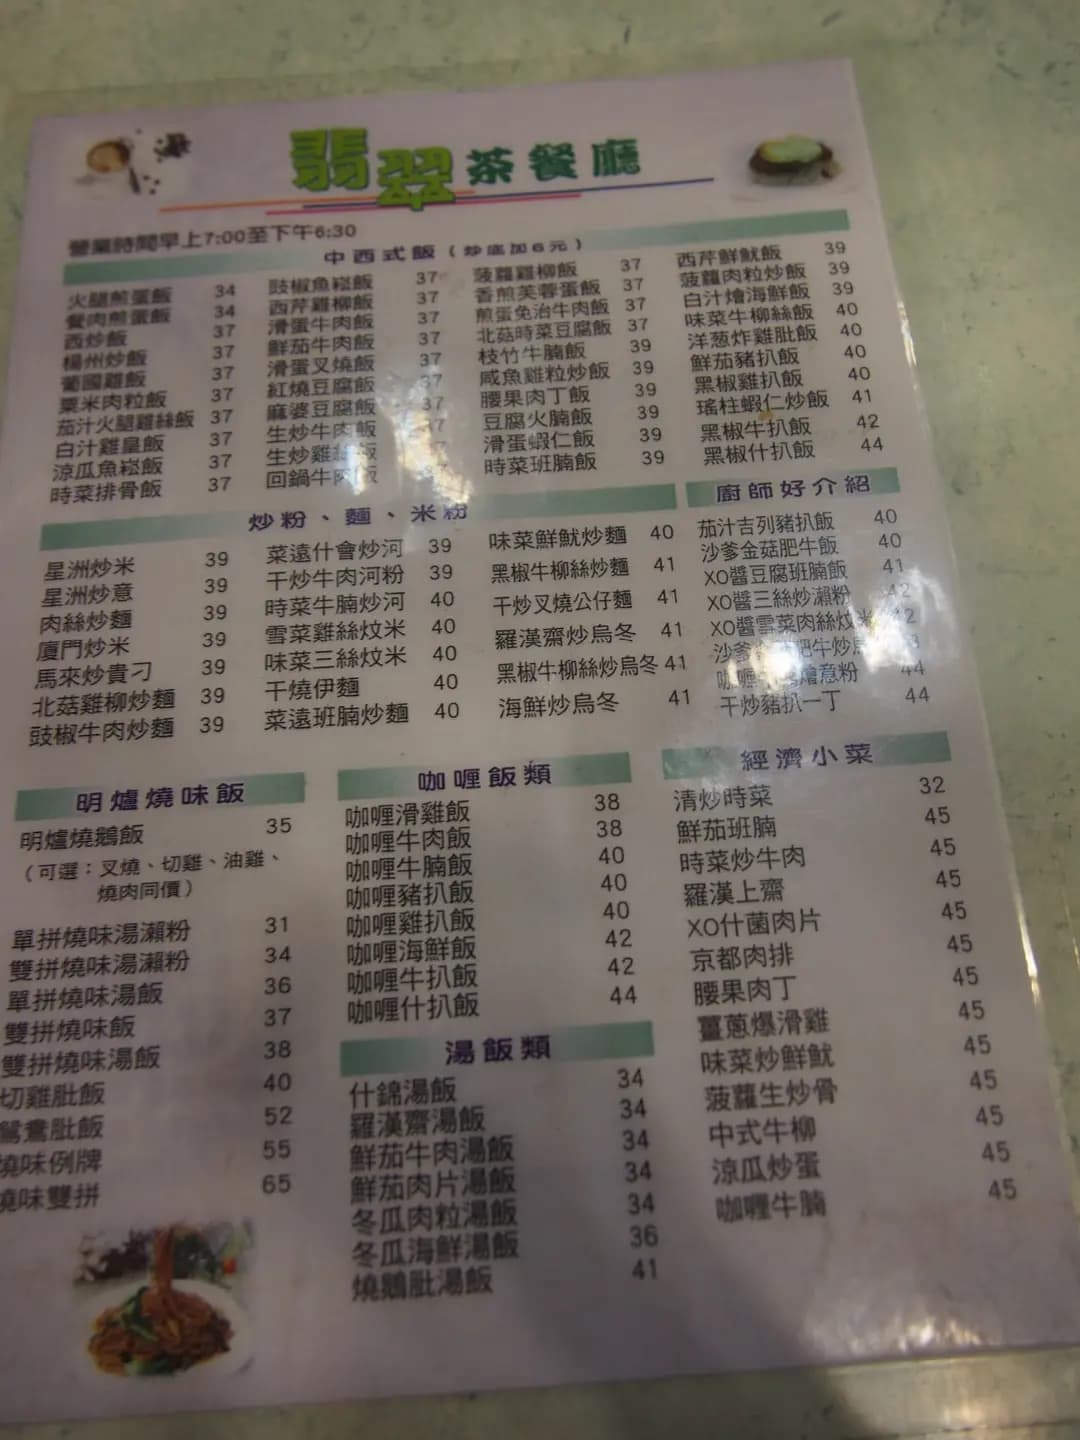 翡翠茶餐廳
營業時間早上7:00至下午6:30
中西式飯（炒底加6元）
火腿煎蛋飯 34
餐肉煎蛋飯 34
西炒飯 37
楊州炒飯 37
葡國雞飯 37
粟米肉粒飯 37
茄汁火腿雞絲飯 37
白汁雞皇飯 37
涼瓜魚崧飯 37
時菜排骨飯 37
豉椒魚崧飯 37
西芹雞柳飯 37
滑蛋牛肉飯 37
鮮茄牛肉飯 37
滑蛋叉燒飯 37
紅燒豆腐飯 37
麻婆豆腐飯 37
生炒牛肉飯
生炒雞
回鍋牛肉飯
菠蘿雞柳飯 37
香煎芙蓉蛋飯 37
煎蛋免治牛肉飯 37
北菇時菜豆腐飯 37
枝竹牛腩飯 39
咸魚雞粒炒飯 39
腰果肉丁飯 39
豆腐火腩飯 39
滑蛋蝦仁飯 39
時菜班腩飯 39
西芹鮮魷飯 39
菠蘿肉粒炒飯 39
白汁燴海鮮飯 39
味菜牛柳絲飯 40
洋葱炸雞肶飯 40
鮮茄豬扒飯 40
黑椒雞扒飯 40
瑤柱蝦仁炒飯 41
黑椒牛扒飯 42
黑椒什扒飯 44
炒粉、麵、米粉
星洲炒米 39
星洲炒意 39
肉絲炒麵 39
廈門炒米 39
馬來炒貴刁 39
北菇雞柳炒麵 39
豉椒牛肉炒麵 39
菜遠什會炒河 39
干炒牛肉河粉 39
時菜牛腩炒河 40
雪菜雞絲炆米 40
味菜三絲炆米 40
干燒伊麵 40
菜遠班腩炒麵 40
味菜鮮魷炒麵 40
黑椒牛柳絲炒麵 41
干炒叉燒公仔麵 41
羅漢齋炒烏冬 41
黑椒牛柳絲炒烏冬 41
海鮮炒烏冬 41
廚師好介紹
茄汁吉列豬扒飯 40
沙爹金菇肥牛飯 40
XO醬豆腐班腩飯 41
XO醬三絲炒瀨粉 42
XO醬雪菜肉絲炆米 42
沙爹 肥牛炒
咖喱 燴意粉 44
干炒豬扒一丁 44
明爐燒味飯
明爐燒鵝飯 35
（可選：叉燒、切雞、油雞、
燒肉同價）
單拼燒味湯瀨粉 31
雙拼燒味湯瀨粉 34
單拼燒味湯飯 36
雙拼燒味飯 37
雙拼燒味湯飯 38
切雞肶飯 40
鴛鴦肶飯 52
燒味例牌 55
燒味雙拼 65
咖喱飯類
咖喱滑雞飯 38
咖喱牛肉飯 38
咖喱牛腩飯 40
咖喱豬扒飯 40
咖喱雞扒飯 40
咖喱海鮮飯 42
咖喱牛扒飯 42
咖喱什扒飯 44
湯飯類
什錦湯飯 34
羅漢齋湯飯 34
鮮茄牛肉湯飯 34
鮮茄肉片湯飯 34
冬瓜肉粒湯飯 34
冬瓜海鮮湯飯 36
燒鵝肶湯飯 41
經濟小菜
清炒時菜 32
鮮茄班腩 45
時菜炒牛肉 45
羅漢上齋 45
XO什菌肉片 45
京都肉排 45
腰果肉丁 45
薑蔥爆滑雞 45
味菜炒鮮魷 45
菠蘿生炒骨 45
中式牛柳 45
涼瓜炒蛋 45
咖喱牛腩 45